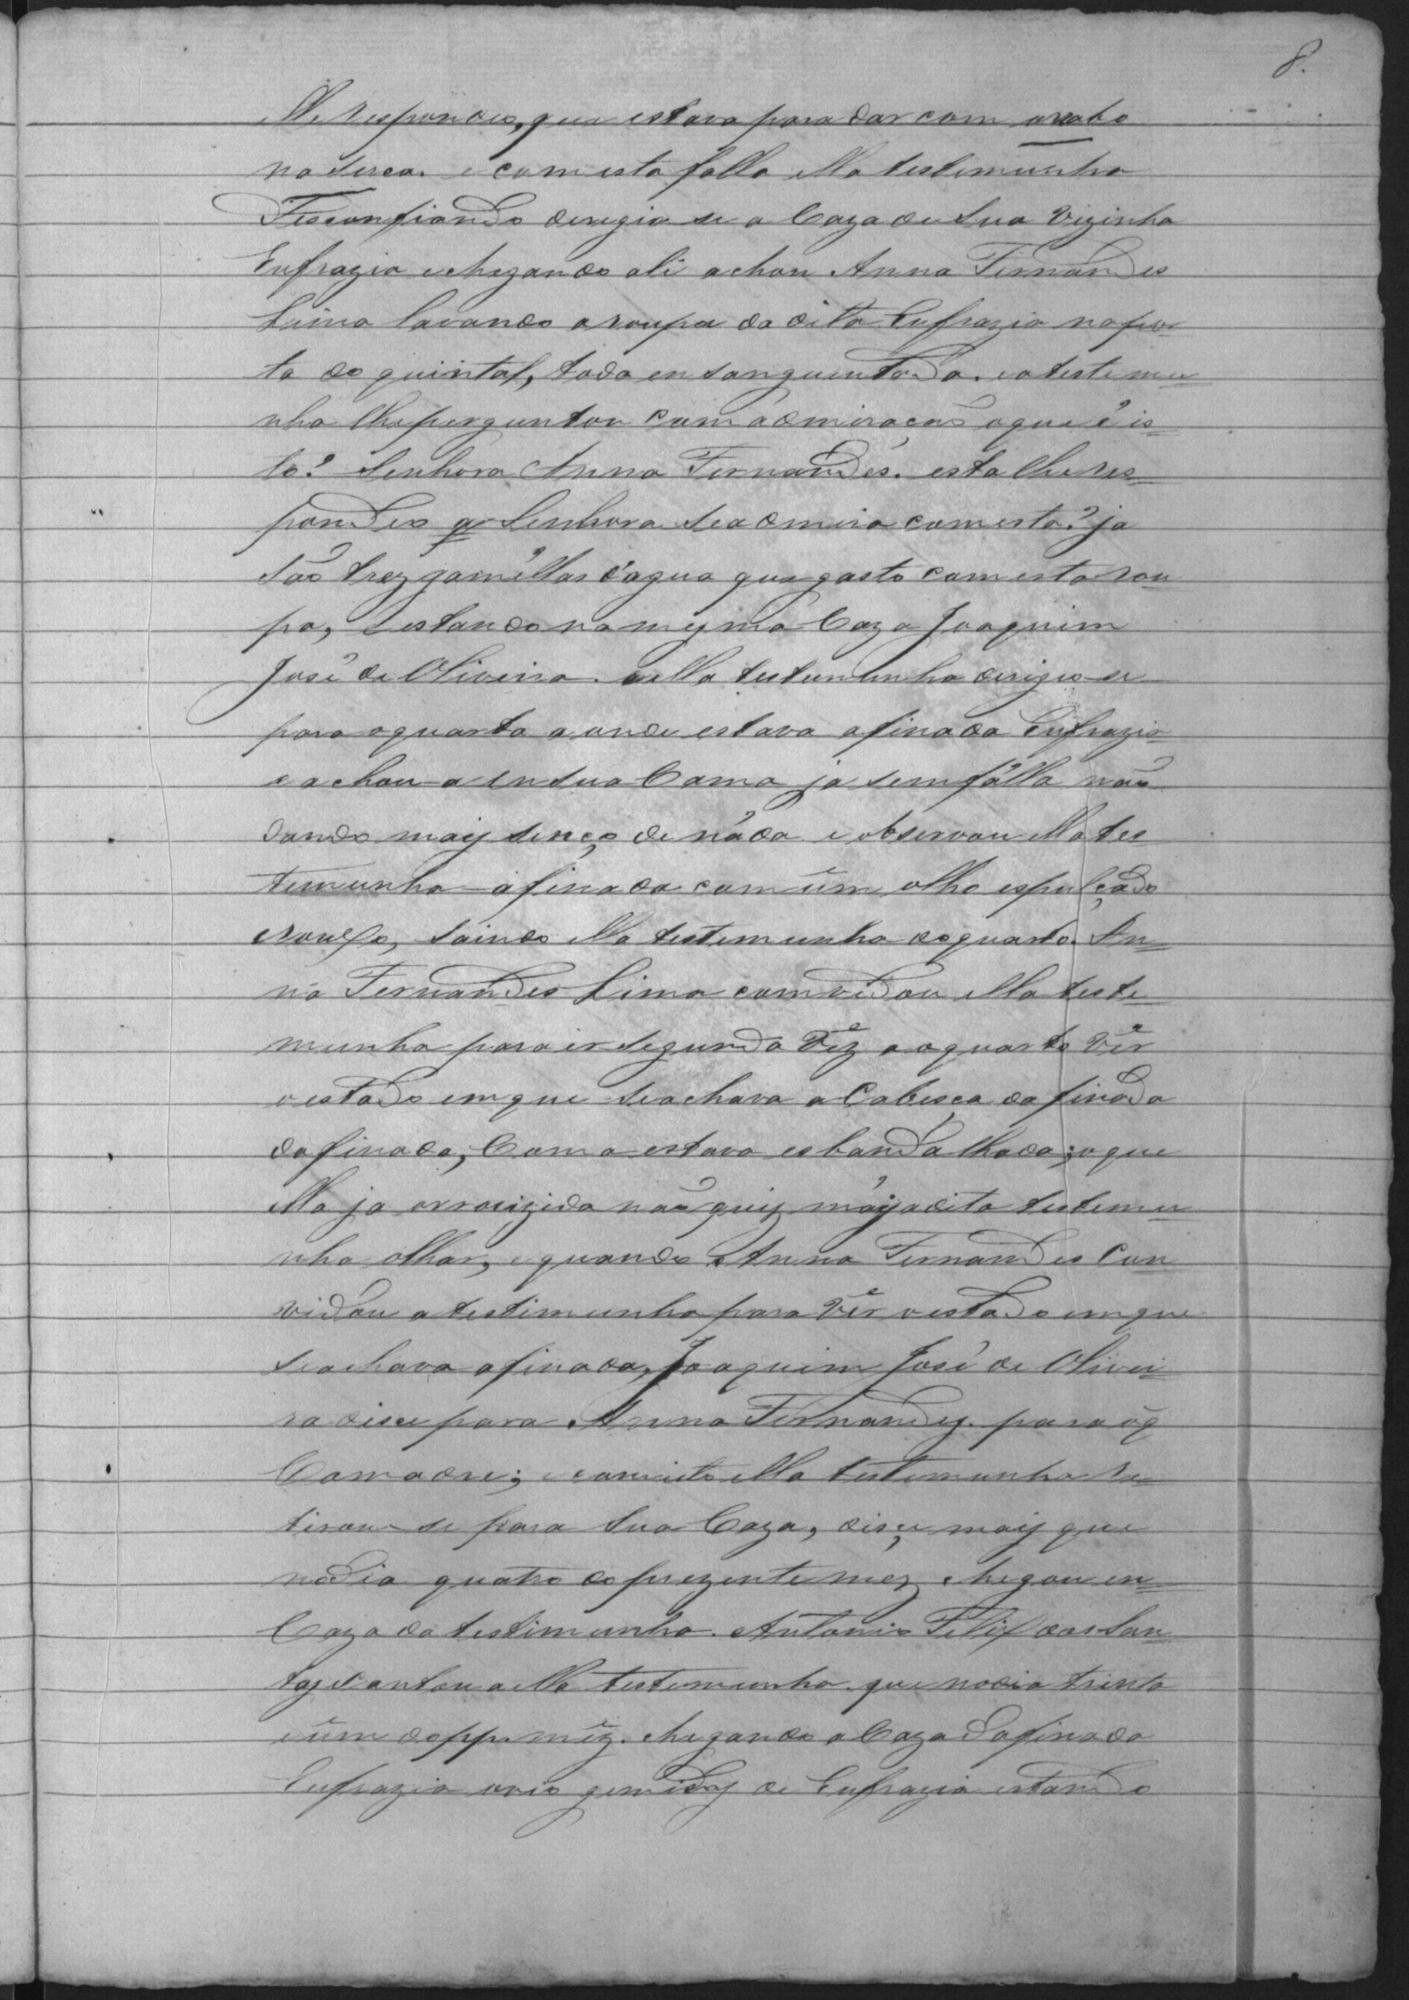 8.
lhe respondeo, que estava para dar com o rabo
na serca. e com esta falla ella testemunha
Desconfiando deregio se a Caza de Sua Vizinha
Eufrazia e chegando ali achou Anna Fernandes
Lima lavando a roupa da dita Eufrazia na por
ta do quintal, toda ensanguentada. e a testemu=
nha lhe perguntou com admiracaõ o que é is=
to? Senhora Anna Fernandes. esta lhe res=
pondeo q Senhora se admira com esto? ja
são trez gaméllas d'agua que gasto com esta rou=
pa, e estando na mesma Caza Joaquim
José de Oliveira. e ella testemunha derigio se
para o quarto a onde estava a finada Eufrazia
e achou-a em sua Cama ja sem fálla não
dando mais senço de náda e observou ella tes
temunha a finada com ũm olho espulçado
e rouxo, saindo ella testemunha do quarto. An=
na Fernandes Lima comvidou ella teste=
munha para ir segunda Vêz ao quarto Vêr
o estado em que se achava a Cabeça da finada
da finada, Como estava esbandalhada; o que
ella ja a não quiz mais a dita testemu=
nha olhar, e quando Anna Fernandes Con
vidou a testimunha para Vêr o estado em que
se achava a finada, Joaquim José de Olivei=
ra disse para Anna Fernandes. para ó q
Comadre; e com isto ella testemunha re=
tirou-se para Sua Caza, disçe mais que
no dia quatro do prezente mez chegou en=
Caza da testimunha. Antonio Felix dos San
tos e contou a ella testemunha. que no dia trinta
e ũm do pp. mêz. chegando a Caza da finada
Eufrazia ovio gemidos de Eufrazia estando